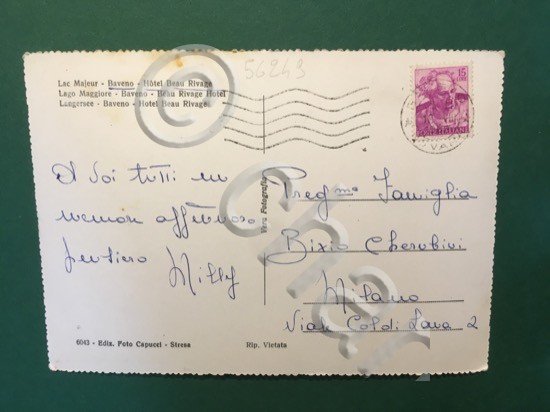 56243
Lac Majeur - Baveno - Hôtel Beau Rivage
Lago Maggiore - Baveno - Beau Rivage Hotel
Langersee - Baveno - Hotel Beau Rivage
15
A Voi tutti un
memore affettuoso
pensiero Milly
Vera Fotografia
Preg.ma Famiglia
Bixio Cherubini
Milano
Viale Coldi Lana 2
6043 - Ediz. Foto Capucci - Stresa
Rip. Vietata